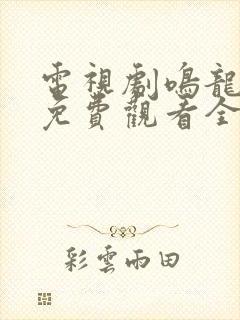 電視劇鳴龍
免費觀看全
彩雲雨田